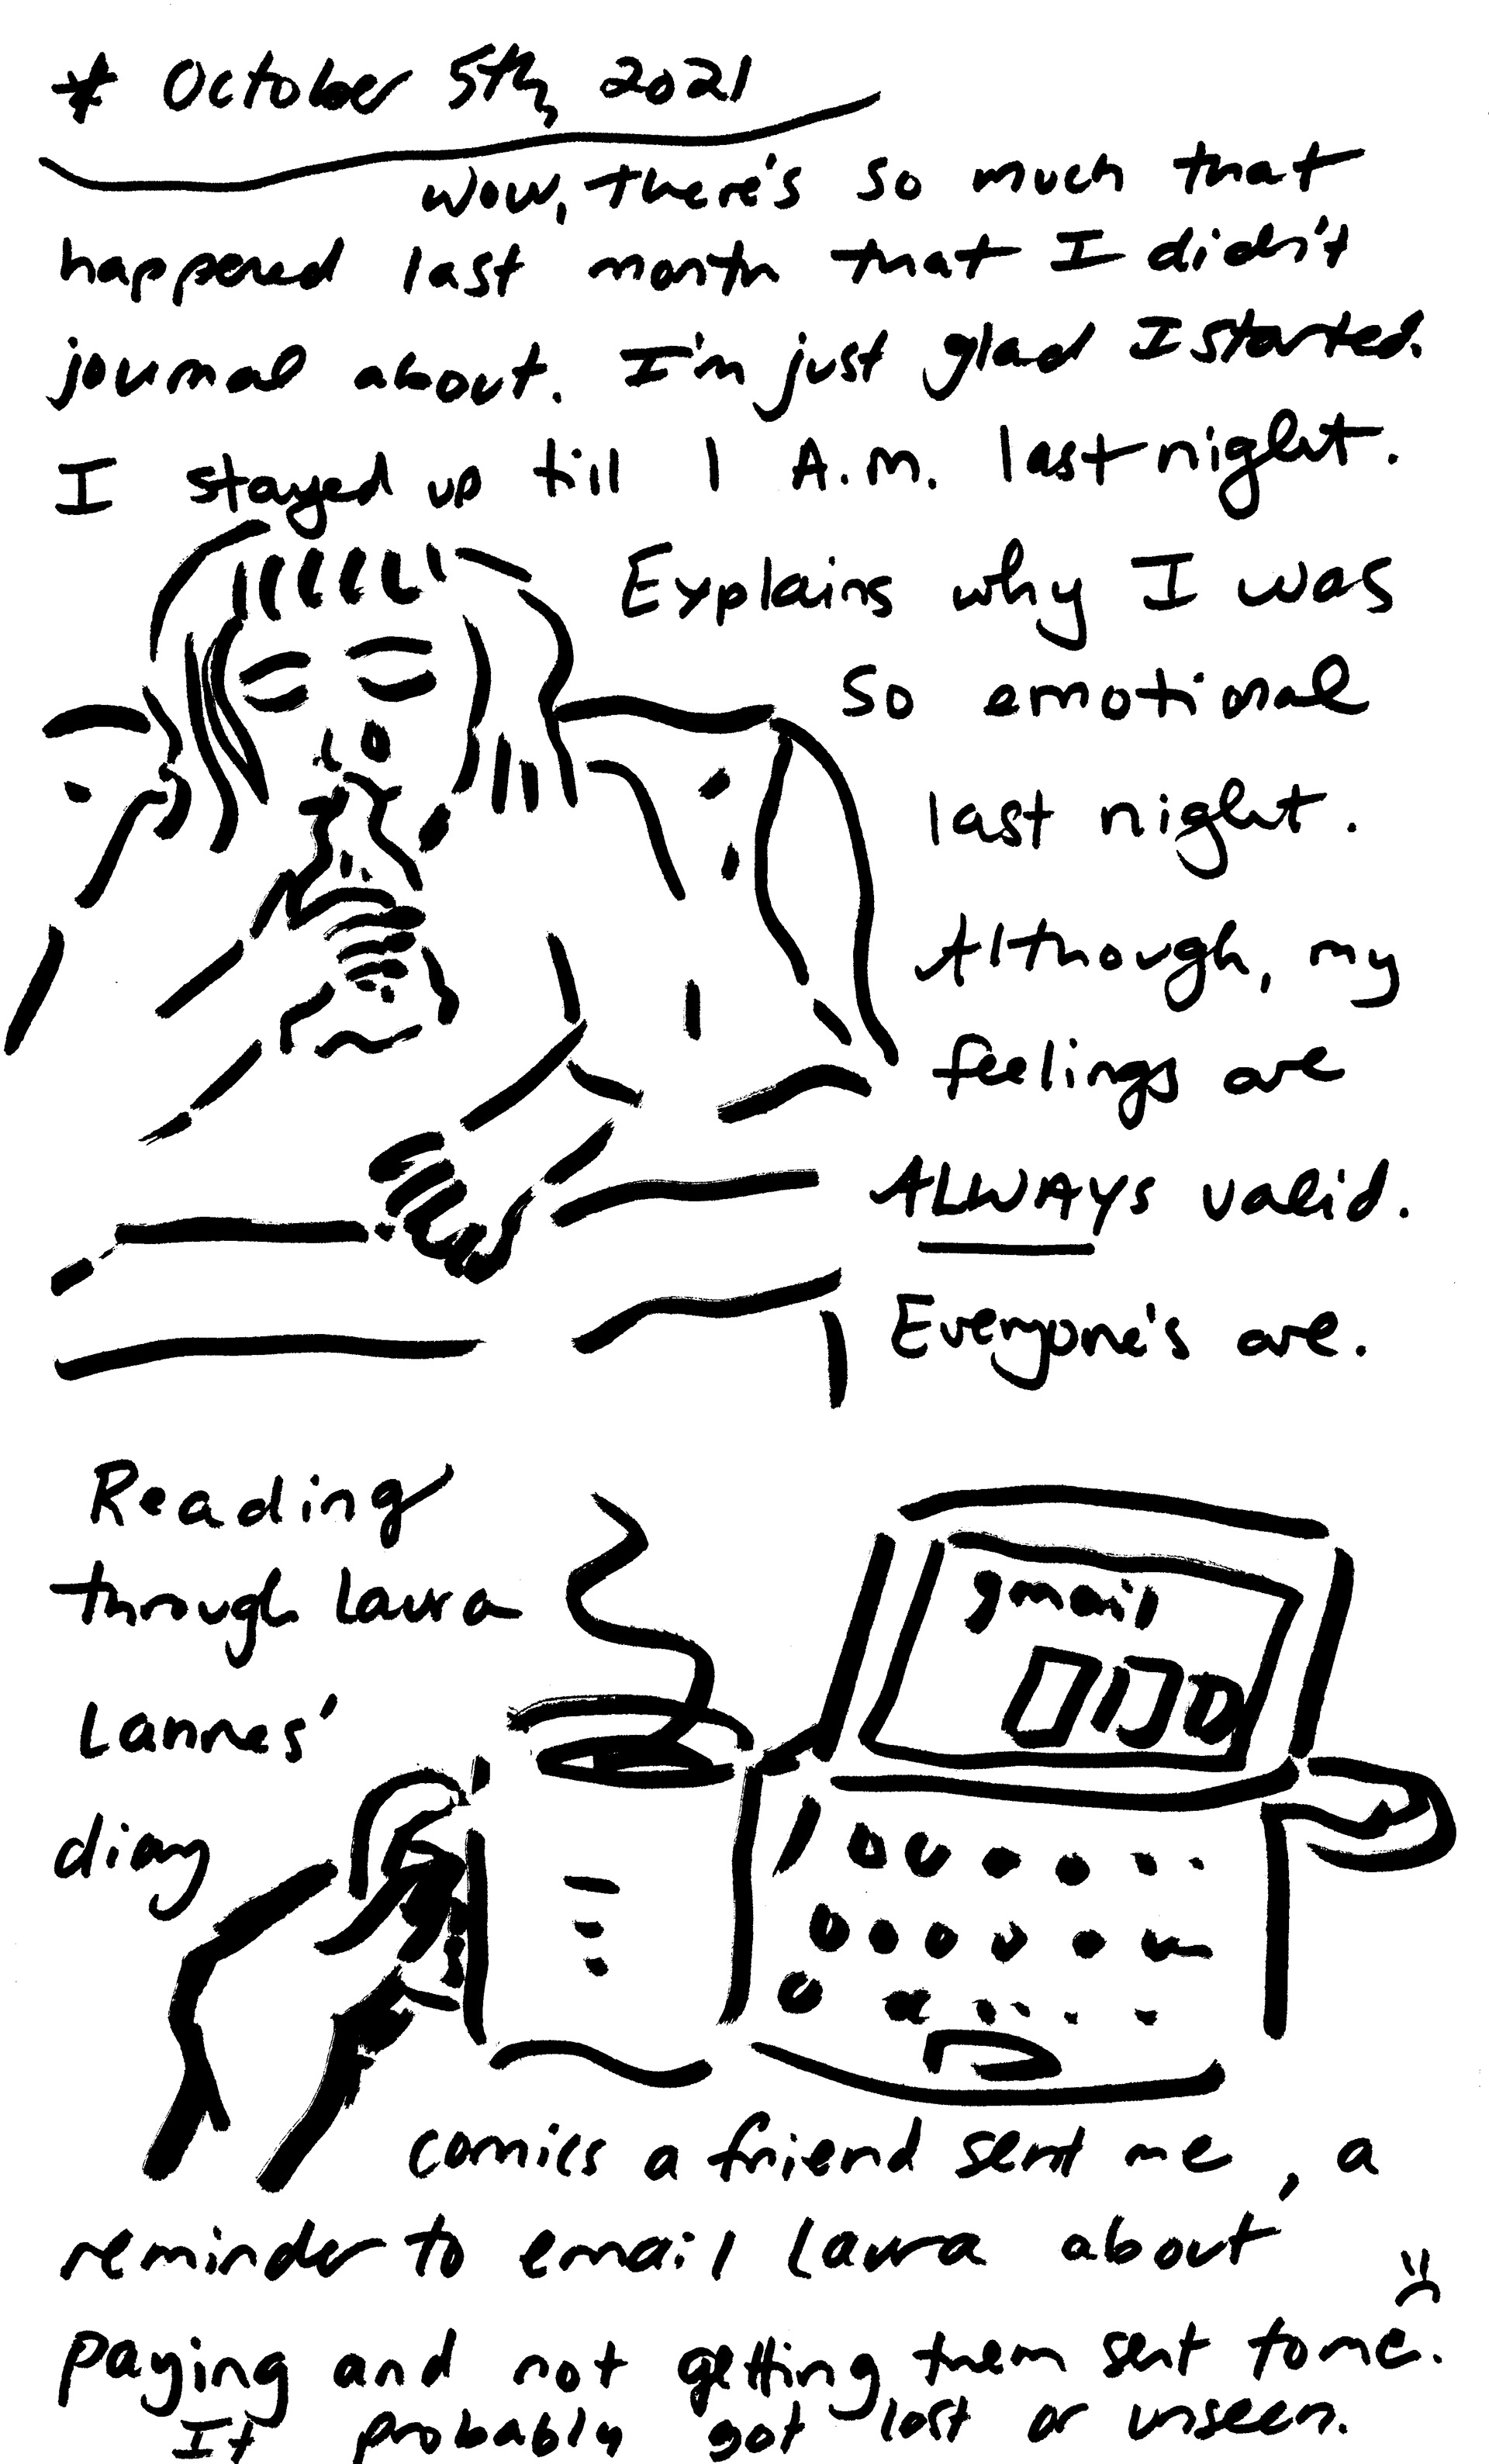 * October 5th, 2021
Wow, there's so much that
happened last month that I didn't
journal about. I'm just glad I started.
I stayed up till 1 A.M. last night.
Explains why I was
so emotional
last night.
Although, my
feelings are
ALWAYS valid.
Everyone's are.
Reading
through Laura
Lannes'
diary
gmail
comics a friend sent me, a
reminder to email Laura about
paying and not getting them sent to me.
It probably got lost or unseen.